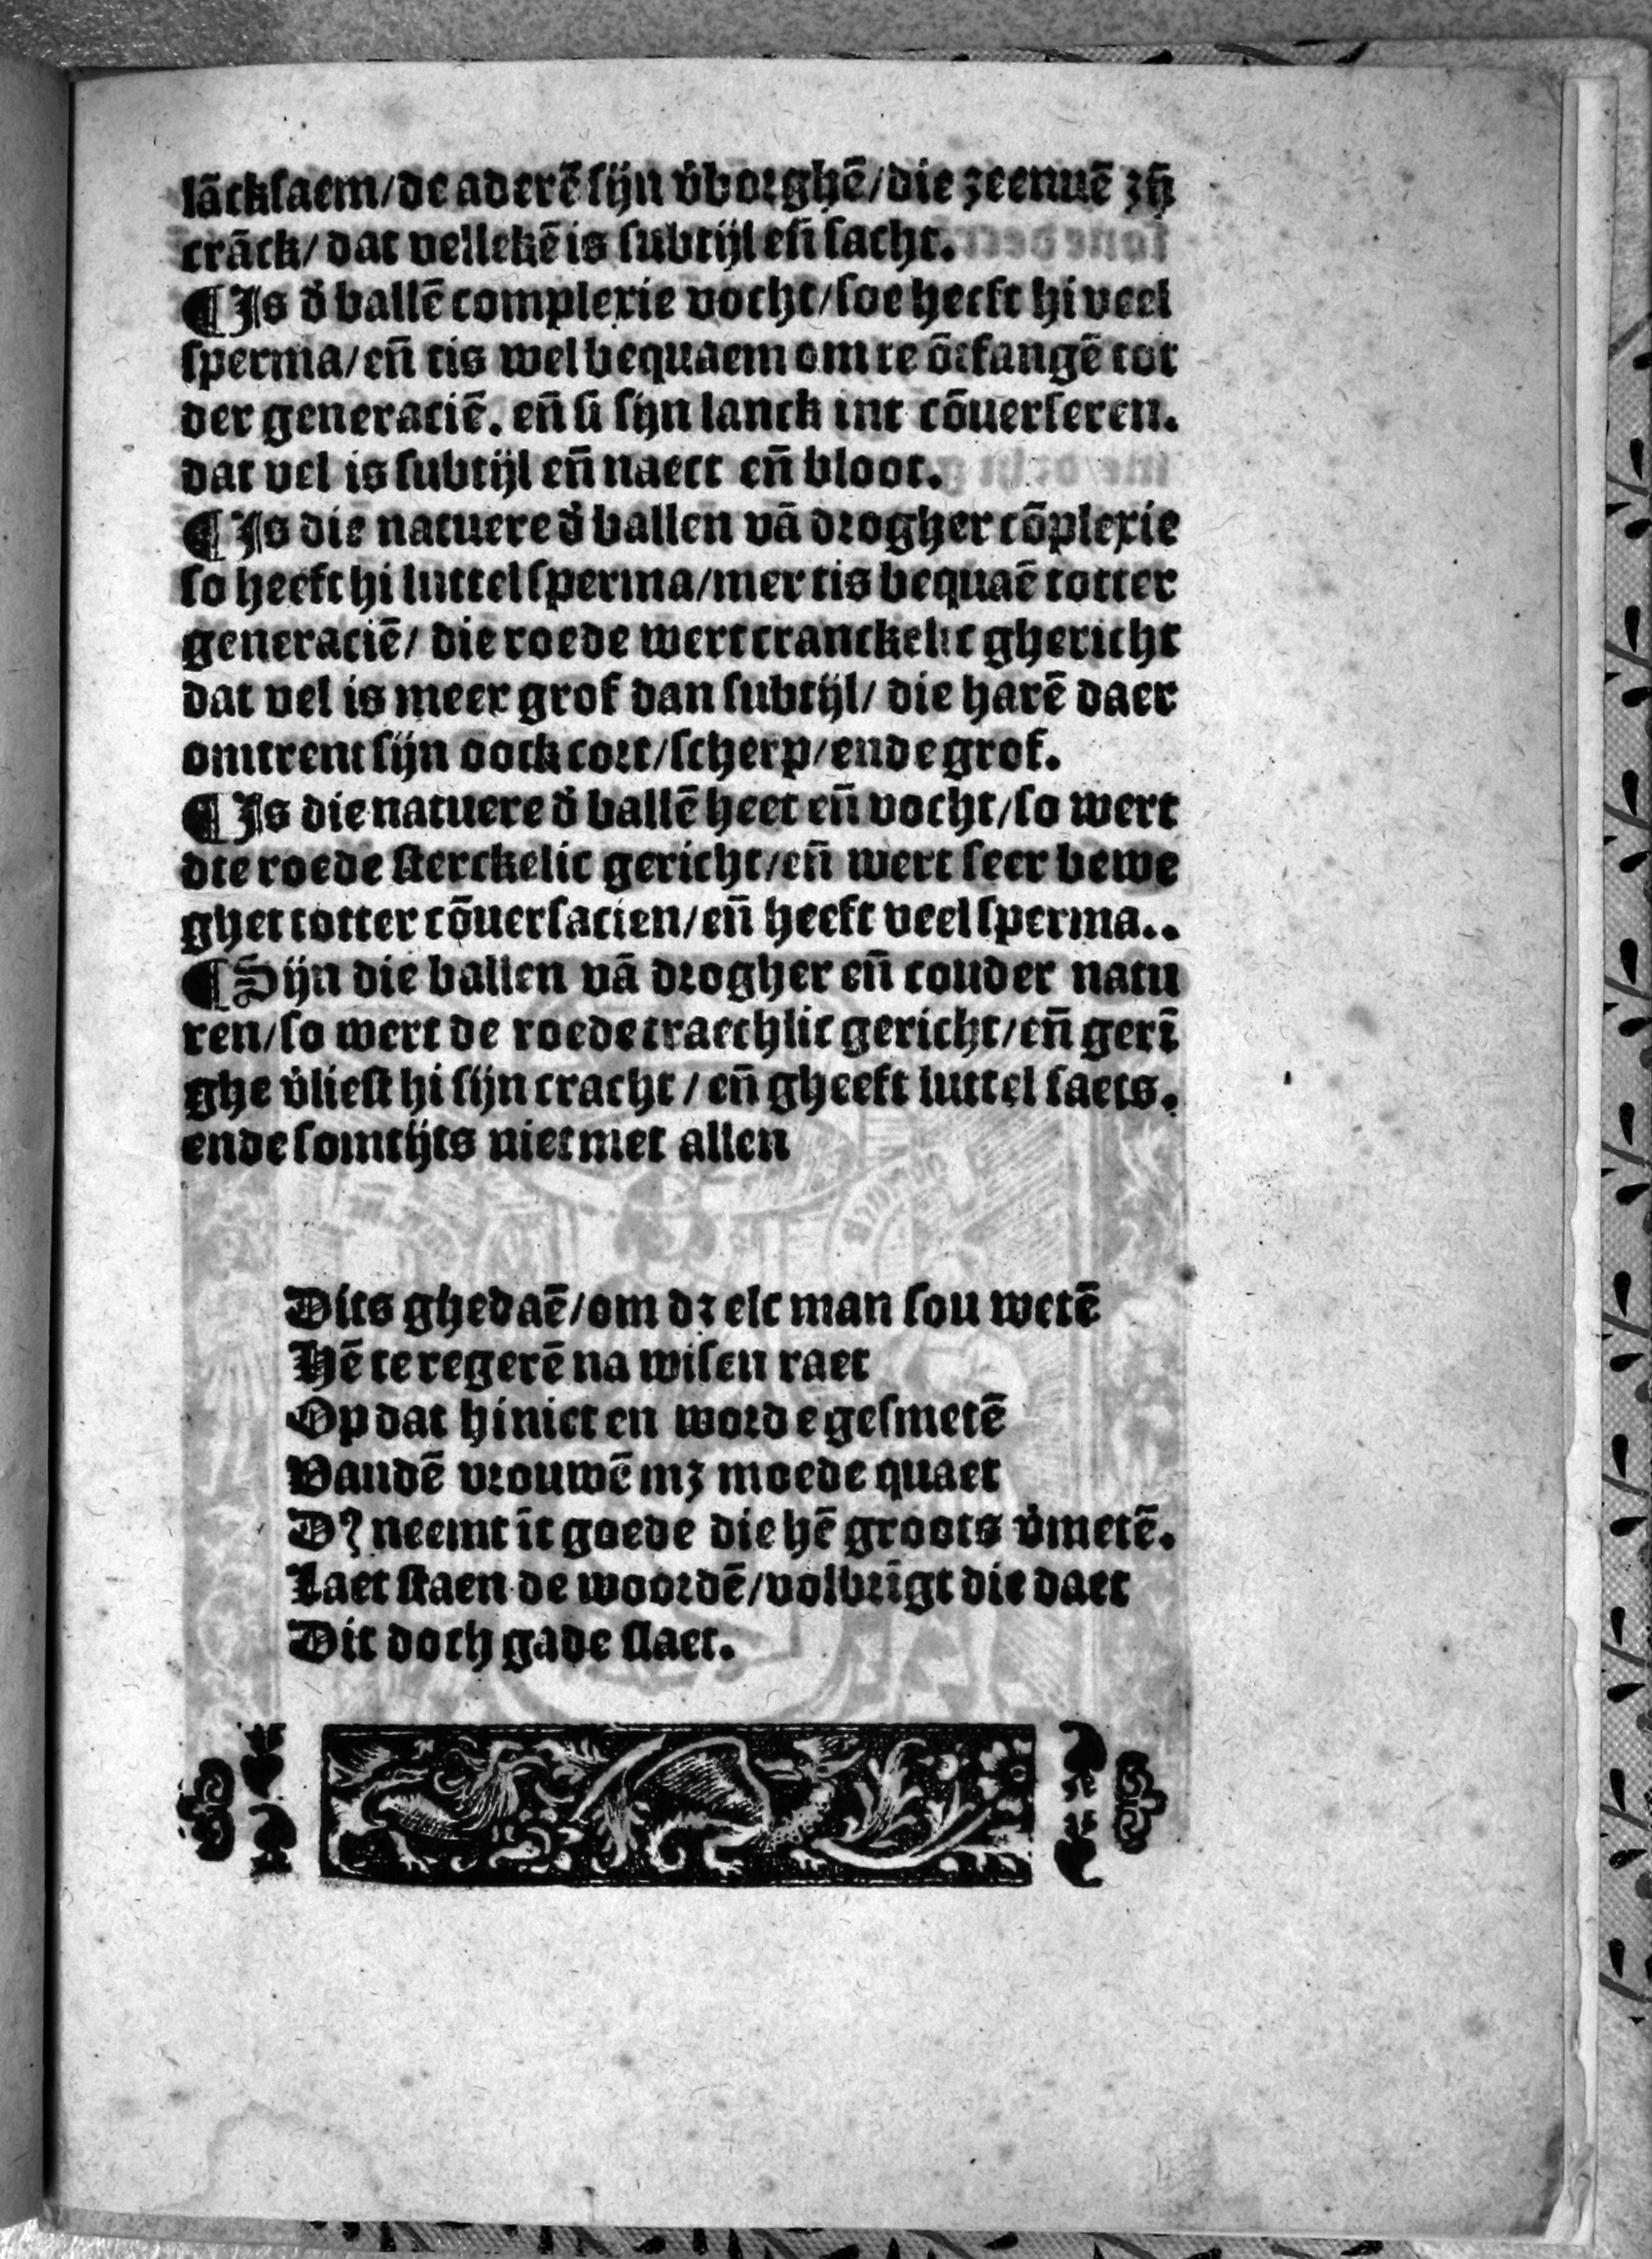 lãcksaem/de aderẽ sijn v̉borghẽ/die zeenuẽ zij̃
crãck/dat vellekẽ is subtijl eñ sacht.
¶Is d̉ ballẽ complexie vocht/soe heeft hi veel
sperma/eñ tis wel bequaem om te õtfangẽ tot
der generaciẽ. eñ si sijn lanck int cõuerseren.
dat vel is subtijl eñ naect eñ bloot.
¶Is die natuere d̉ ballen vã drogher cõplexie
so heeft hi luttel sperma/mer tis bequaẽ totter
generaciẽ/ die roede wert cranckelic ghericht
dat vel is meer grof dan subtijl/ die harẽ daer
omtrent sijn oock cort/scherp/ende grof.
¶Is die natuere d̉ ballẽ heet eñ vocht/so wert
die roede sterckelic gericht/eñ wert seer bewe
ghet totter cõuersacien/eñ heeft veel sperma..
¶Sijn die ballen vã drogher eñ couder natu
ren/so wert de roede traechlic gericht/eñ gerĩ
ghe v̉liest hi sijn cracht/eñ gheeft luttel saets.
ende somtijts niet met allen
Dits ghedaẽ/om dz elc man sou wetẽ
Hẽ te regerẽ na wisen raet
Op dat hi niet en worde gesmetẽ
Vandẽ vrouwẽ mz moede quaet
Dꝭ neemt ĩt goede die hẽ groots v̉metẽ.
Laet staen de woordẽ/volbrĩgt die daet
Dit doch gade slaet.